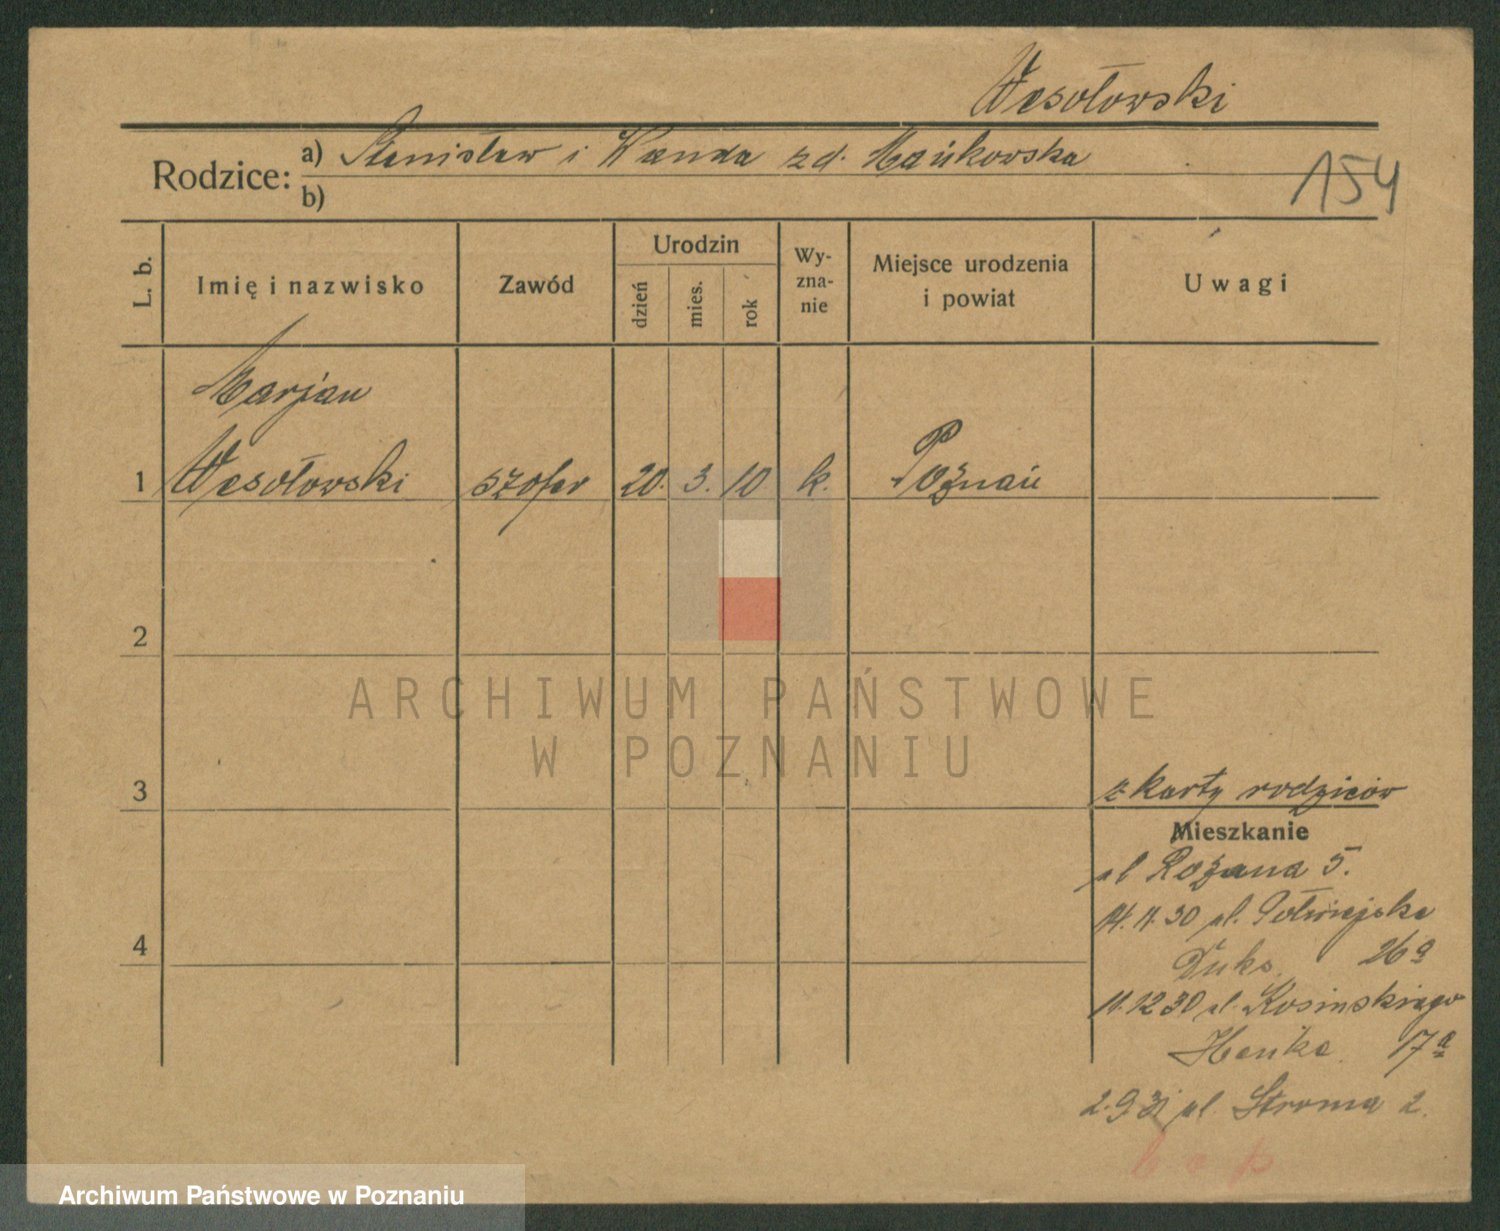 Wesołowski
Rodzice: a) Stanisław i Wanda zd. Mańkowska
b)
154
L. b.
Imię i nazwisko
Zawód
Urodzin
dzień
mies.
rok
Wy-
zna-
nie
Miejsce urodzenia
i powiat
Uwagi
Marjan
1 Wesołowski szofer 20. 3. 10 k. Poznań
2
ARCHIWUM PAŃSTWOWE
W POZNANIU
3 z karty rodziców
Mieszkanie
ul Różana 5.
14.11.30 ul. Półwiejska
26a
4
11.12 30 ul. Kosinskiego
17a
2.9 31 ul. Stroma 2.
Archiwum Państwowe w Poznaniu